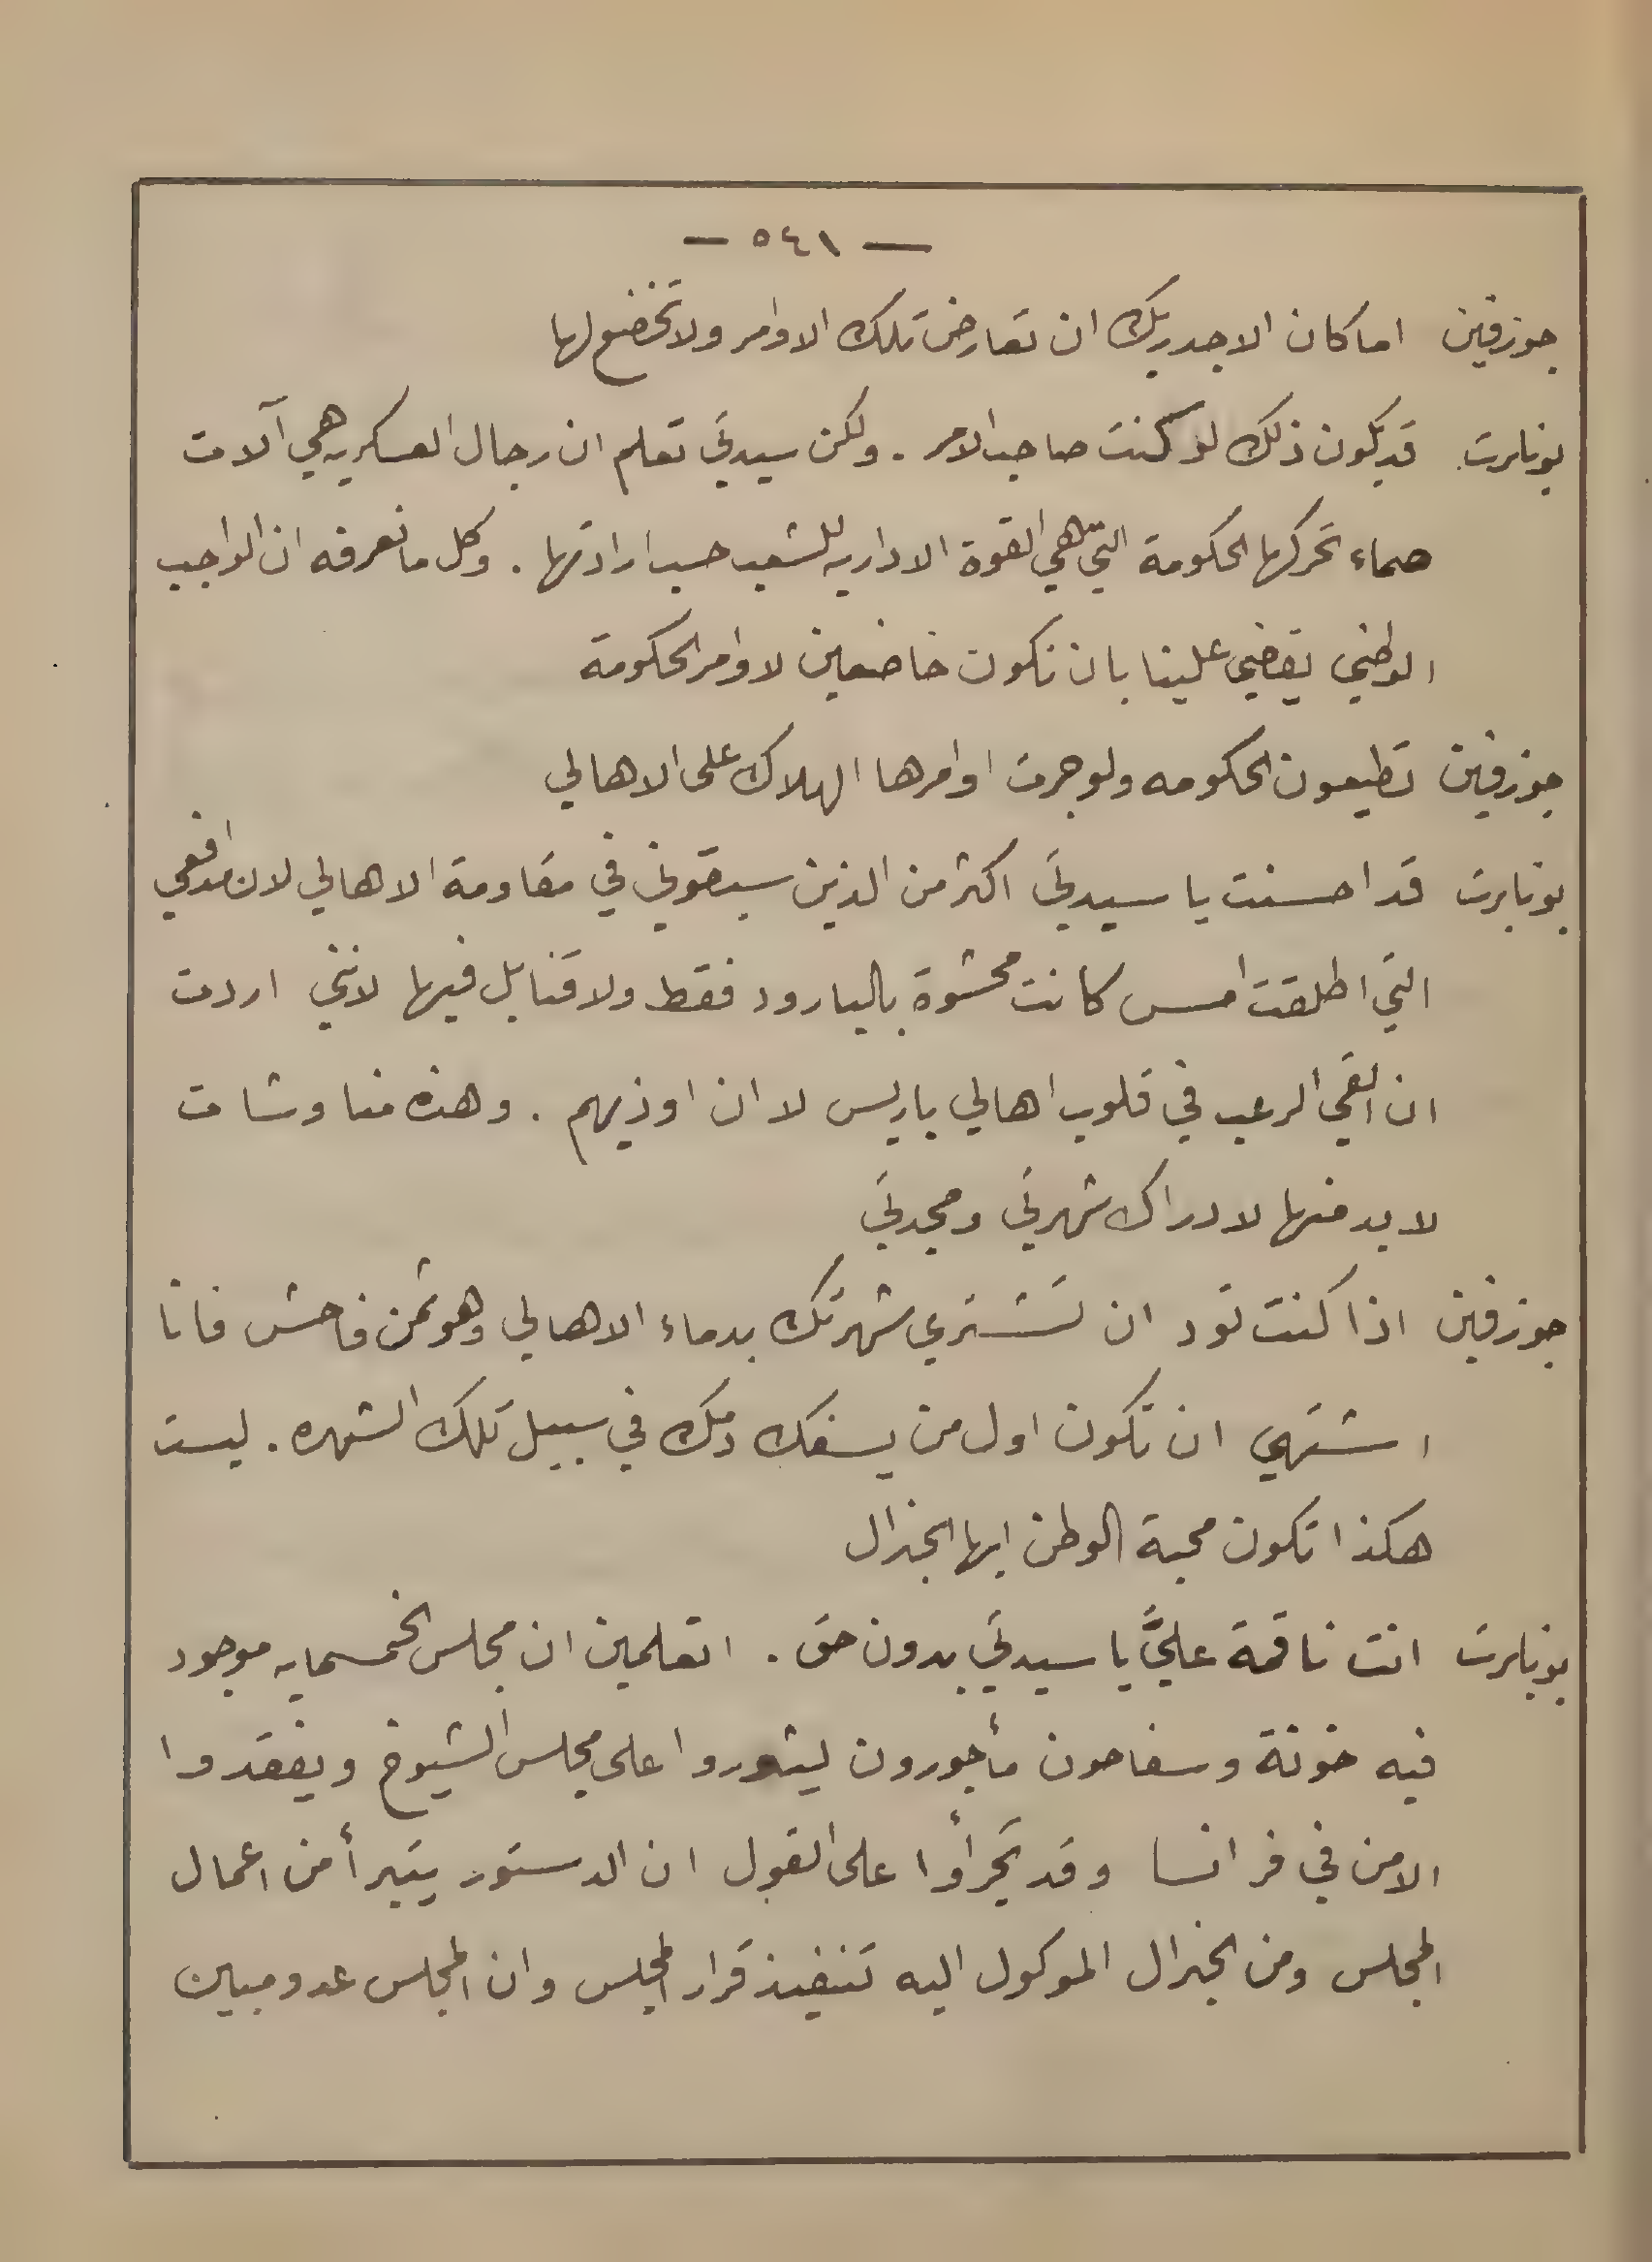 — ٥٤١ —
جوزفين اما كان الاجدر بك ان تعارض تلك الاوامر ولا تخضع لها
بونابرت قد يكون ذلك لو كنت صاحب الامر . ولكن سيدتي تعلم ان رجال العسكريه هي آلات
صماء تحركها الحكومة التي هي القوة الاداريه للشعب حسب ارادتها . وكل ما نعرفه ان الواجب
الوطني يقضي علينا بان نكون خاضعين لاوامر الحكومة
جوزفين تطيعون الحكومه ولو جرت اوامرها الهلاك على الاهالي
بونابرت قد احسنت يا سيدتي اكثر من الذين سبقوني في مقاومة الاهالي لان مدافعي
التي اطلقت امس كانت محشوة بالبارود فقط ولا قنابل فيها لانني اردت
ان القي الرعب في قلوب اهالي باريس لا ان اوذيهم . وهذه مناوشات
لا بد منها لادراك شهرتي ومجدتي
جوزفين اذا كنت تود ان تشتري شهرتك بدماء الاهالي وهو ثمن فاحش فانا
اشتهي ان تكون اول من يسفك دمك في سبيل تلك الشهره . ليست
هكذا تكون محبة الوطن ايها الجنرال
بونابرت انت ناقمة عليَّ يا سيدتي بدون حق . اتعلمين ان مجلس الخمسمايه موجود
فيه خونة وسفاحون مأجورون ليثوروا على مجلس الشيوخ ويفقدوا
الامن في فرانسا وقد تجرأوا على القول ان الدستور يتبرأ من اعمال
المجلس ومن الجنرال الموكول اليه تنفيذ قرار المجلس وان المجلس عدو مبين